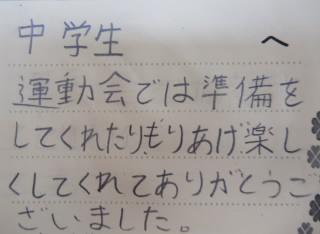 中学生　へ
運動会では準備を
してくれたりもりあげ楽し
くしてくれてありがとうご
ざいました。